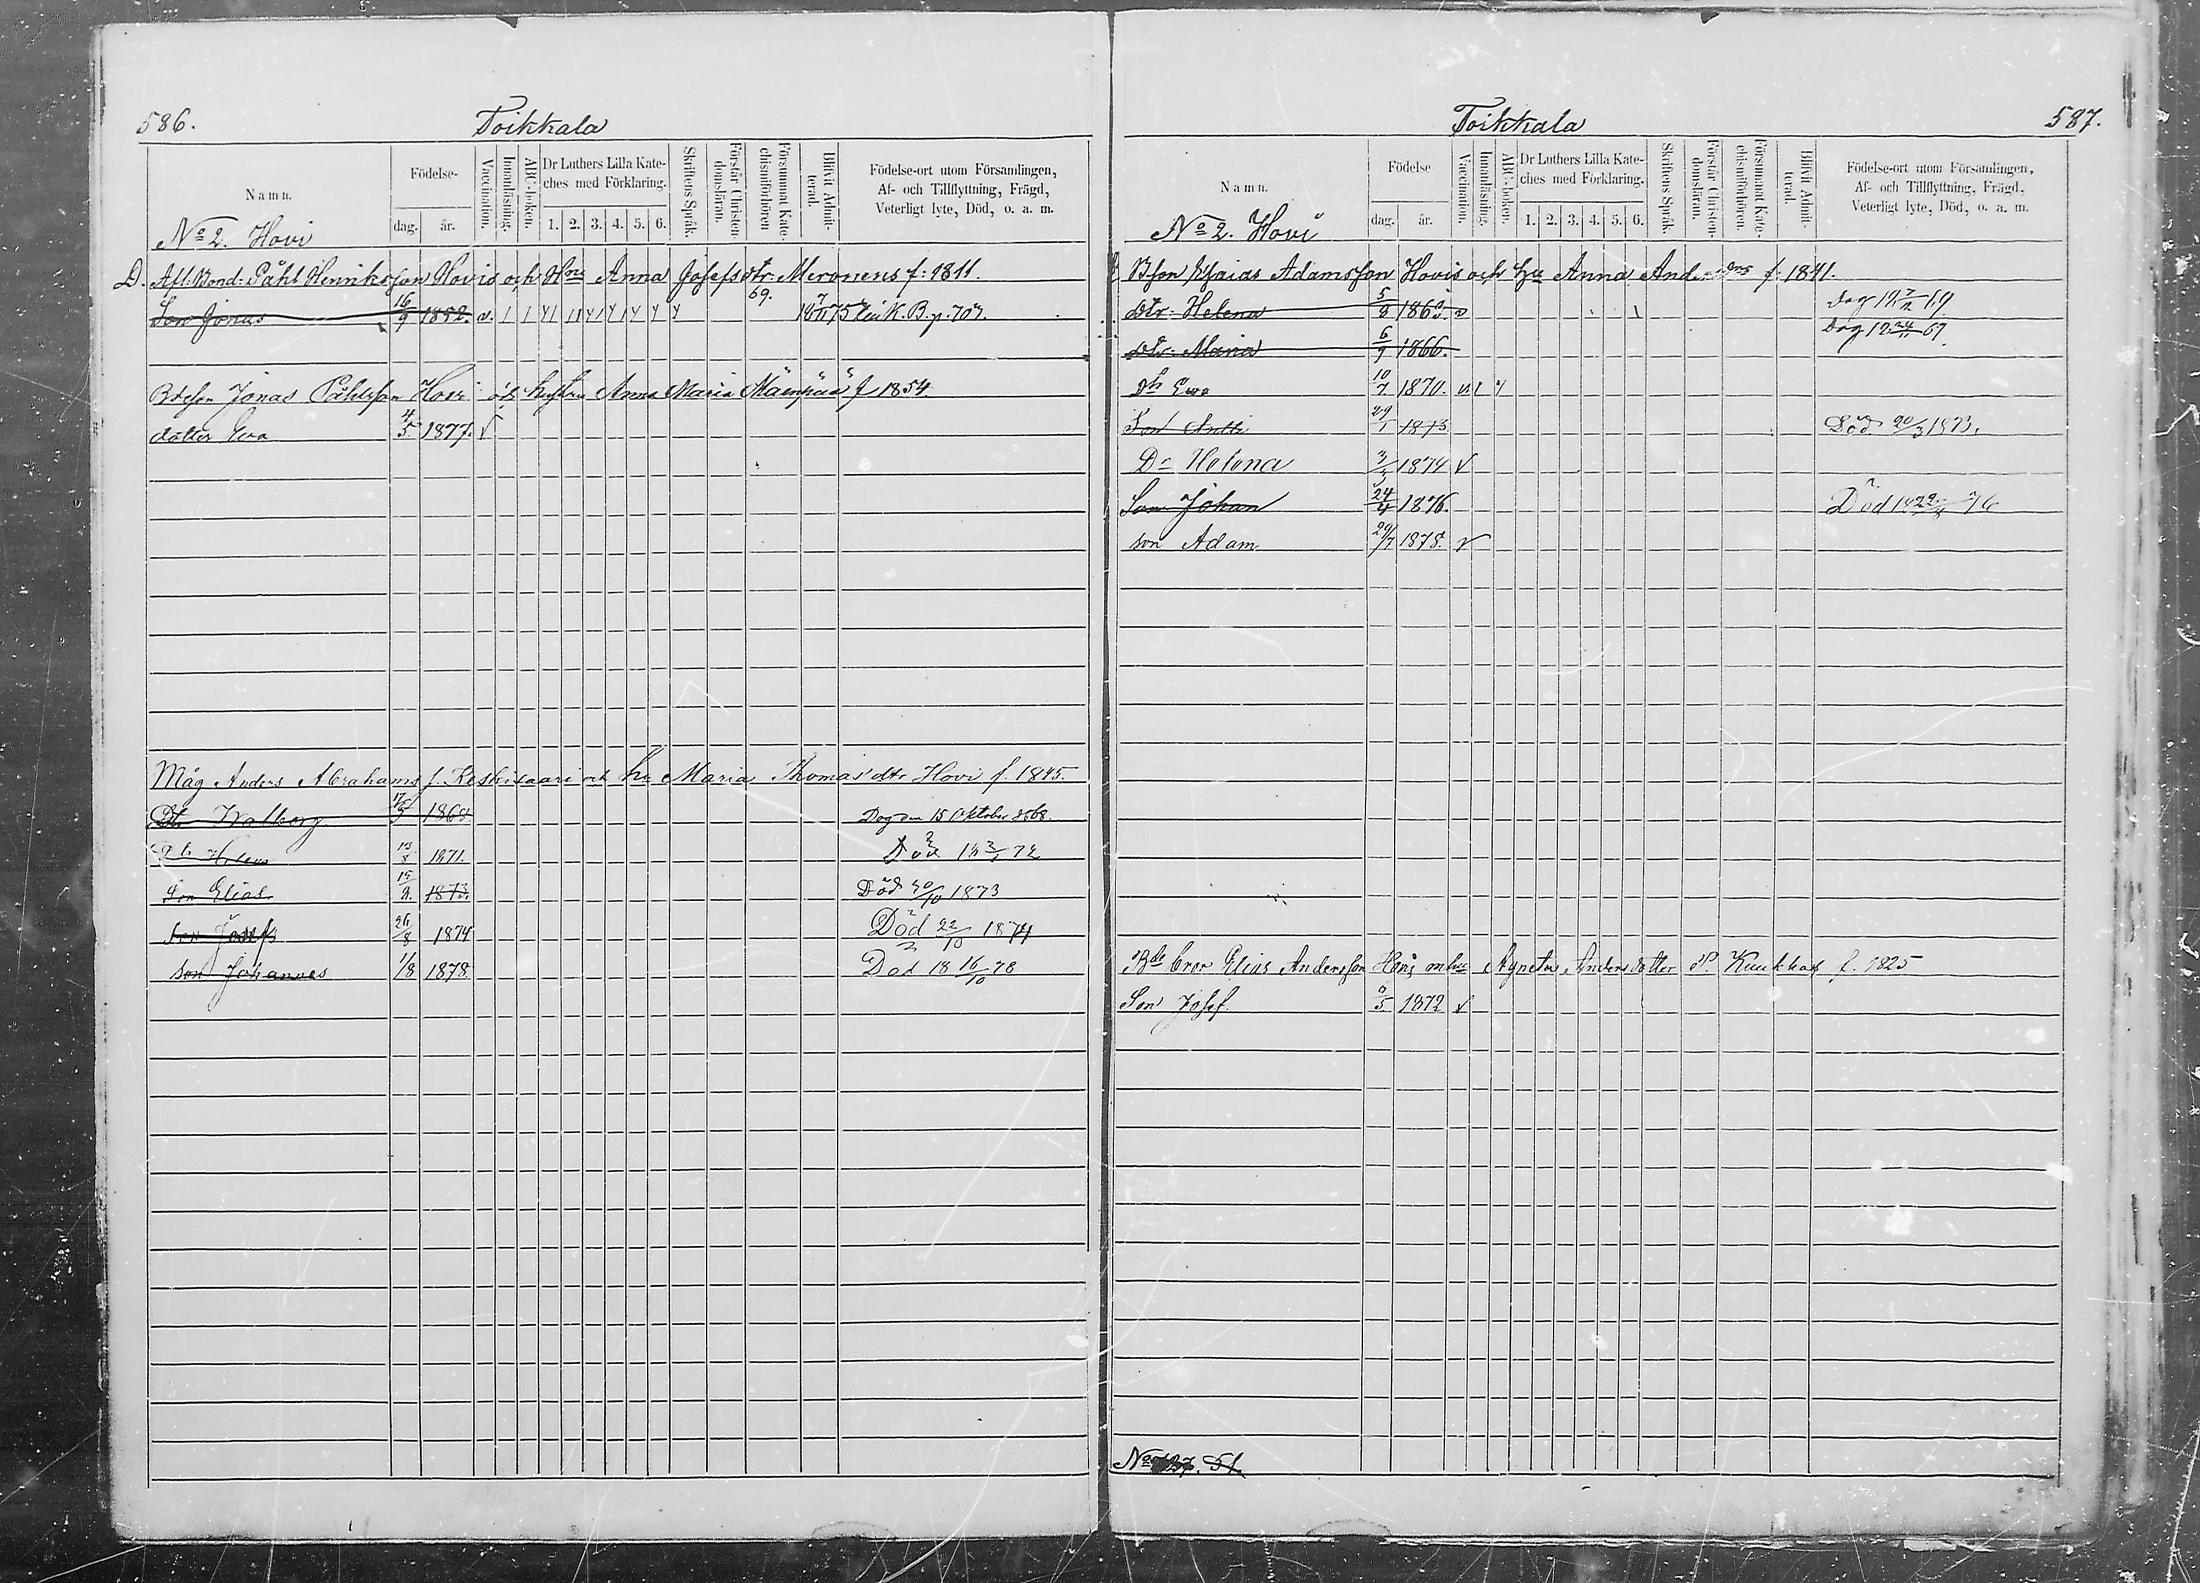 586.
Toikkala
Namn.
Födelse-
dag.
år.
Vaccination.
Innanläsning.
ABC-boken.
Dr Luthers Lilla Kate-
ches med Förklaring.
1. 2. 3. 4. 5. 6.
Skriftens Språk.
Förstår Christen-
domsläran.
Försummat Kate-
chismiförhören
Blifvit Admit-
terad.
Födelse-ort utom Församlingen,
Af- och Tillflyttning, Frägd,
Veterligt lyte, Död, o. a. m.
No 2. Hovi
D. Afl. Bond: Påhl Henriksson Hovis och Hus Anna Josefsdtr Meronens f: 1811.
Son Jonas 16/9 1852. v. 69. 18 7/11 75 K. B. p. 707.
Bdeson Jonas Påhlsson Hovi och hustru Anna Maria Mäenpää f 1854.
dotter Eva 4/5 1877. v
Måg Anders Abrahams s. Keskisaari och hu Maria Thomas dtr Hovi f. 1845.
Dtr Walborg 17/9 1868 Dog den 15 Oktober 1868.
Dtr Helena 13/8 1871. Död 18 3/1 72
Son Elias 15/2. 1873. Död 30/10 1873
Son Josef 26/8 1874 Död 22/10 1874
son Johannes 1/8 1878 Död 18 16/10 78
Toikkala
587.
Namn.
Födelse
dag.
år.
Vaccination.
Innanläsning.
ABC-boken.
Dr Luthers Lilla Kate-
ches med Förklaring.
1. 2. 3. 4. 5. 6.
Skriftens Språk.
Förstår Christen-
domsläran.
Försummat Kate-
chismiförhören.
Blifvit Admit-
terad.
Födelse-ort utom Församlingen,
Af- och Tillflyttning, Frägd,
Veterligt lyte, Död, o. a. m.
No 2. Hovi
Bson Esaias Adamsson Hovis och hu Anna Andersdrs f. 1841.
Dtr. Helena 5/8 1863. v Dog
Dtr. Maria 6/9 1866. Dog 18 24/11 67
Dtr Eva 10/7 1870. v.
Son Antti 29/1 1873 Död 20/3 1873.
Dr Helena 3/3 1874 v
Son Johan 24/4 1876. Död 76
son Adam 29/7 1878. v
Bde bror Elias Andersson Hovi m hu Agneta Andersdotter Kuukka f. 1825
Son Josef. 1872 v